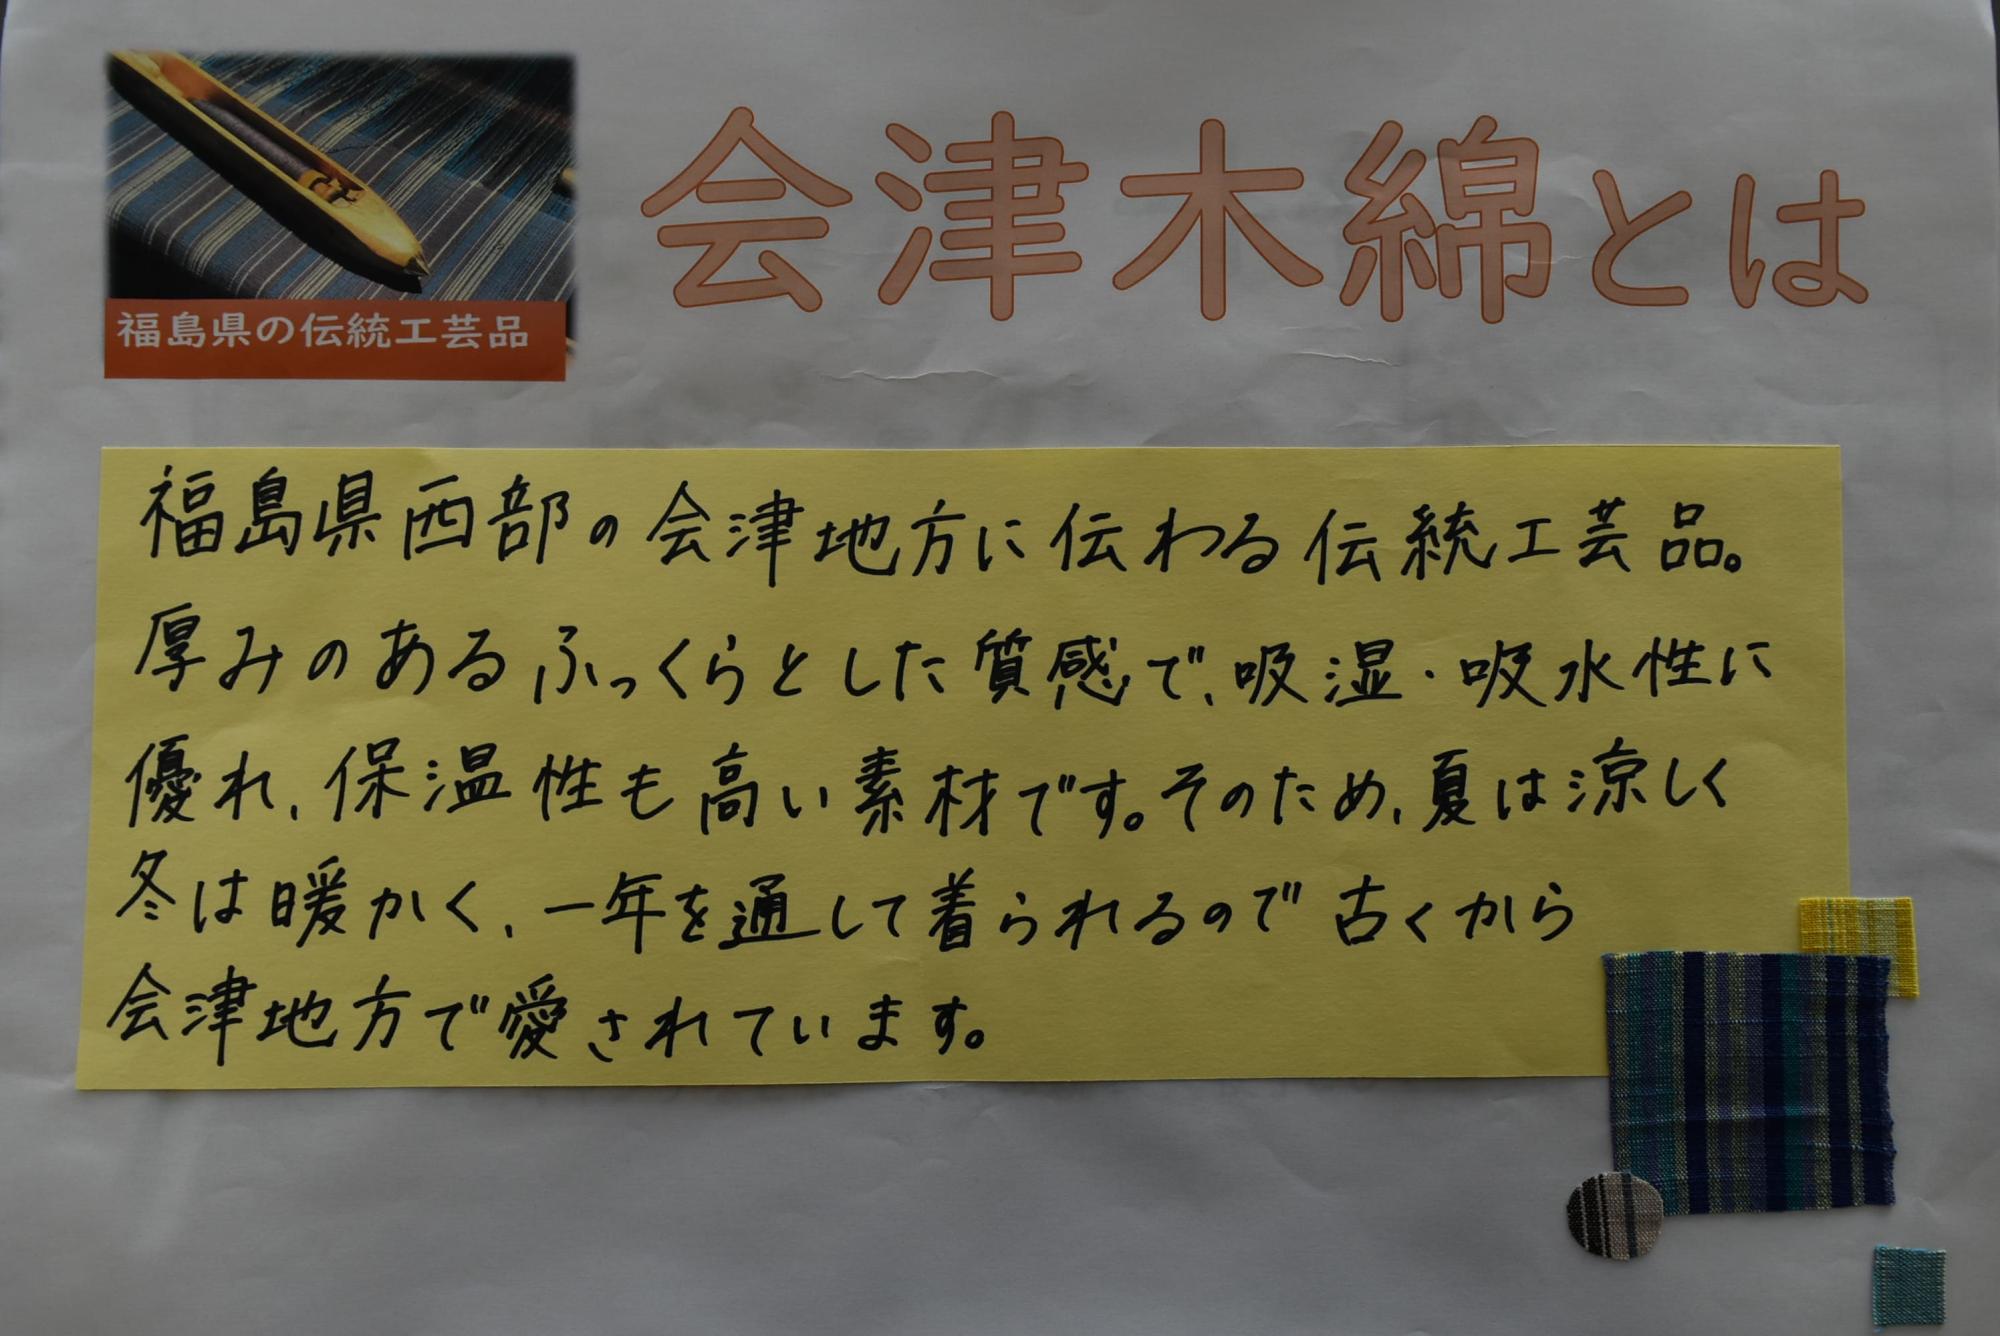 会津木綿とは
福島県の伝統工芸品
福島県西部の会津地方に伝わる伝統工芸品。
厚みのあるふっくらとした質感で、吸湿・吸水性に
優れ、保温性も高い素材です。そのため、夏は涼しく
冬は暖かく、一年を通して着られるので古くから
会津地方で愛されています。